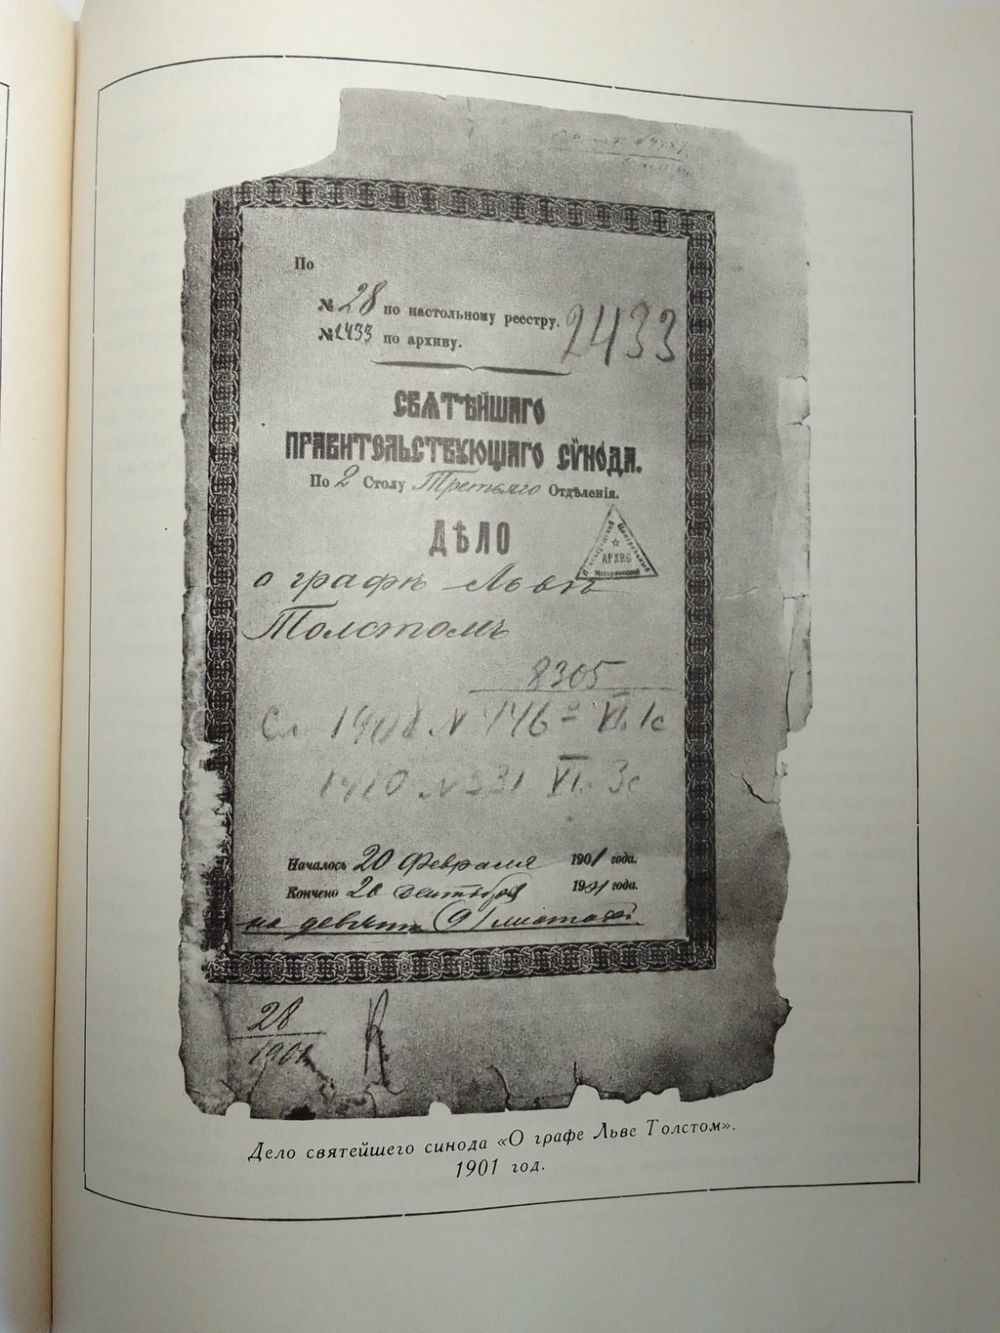 По
№ 28 по настольному реестру.
№ 2433 по архиву.
2433
СВѦТѢЙШАГО
ПРАВИТЕЛЬСТВУЮЩАГО СѴНОДА.
По 2 Столу Третьяго Отдѣленія.
ДѢЛО
АРХИВ
Исторический
о графѣ Львѣ
Толстомъ
8305
1908 № 446 VI. 1с
1910 № 331 VI. 3с
Началось 20 февраля 1901 года.
Кончено 20 сентября 1901 года.
на девяти (9) листахъ.
28
1901
Дело святейшего синода «О графе Льве Толстом».
1901 год.